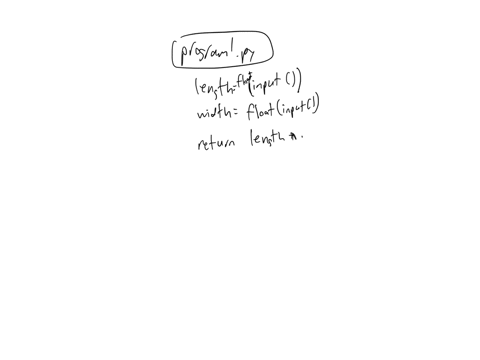 program1.py
length=float(input())
width= float(input())
return length *.